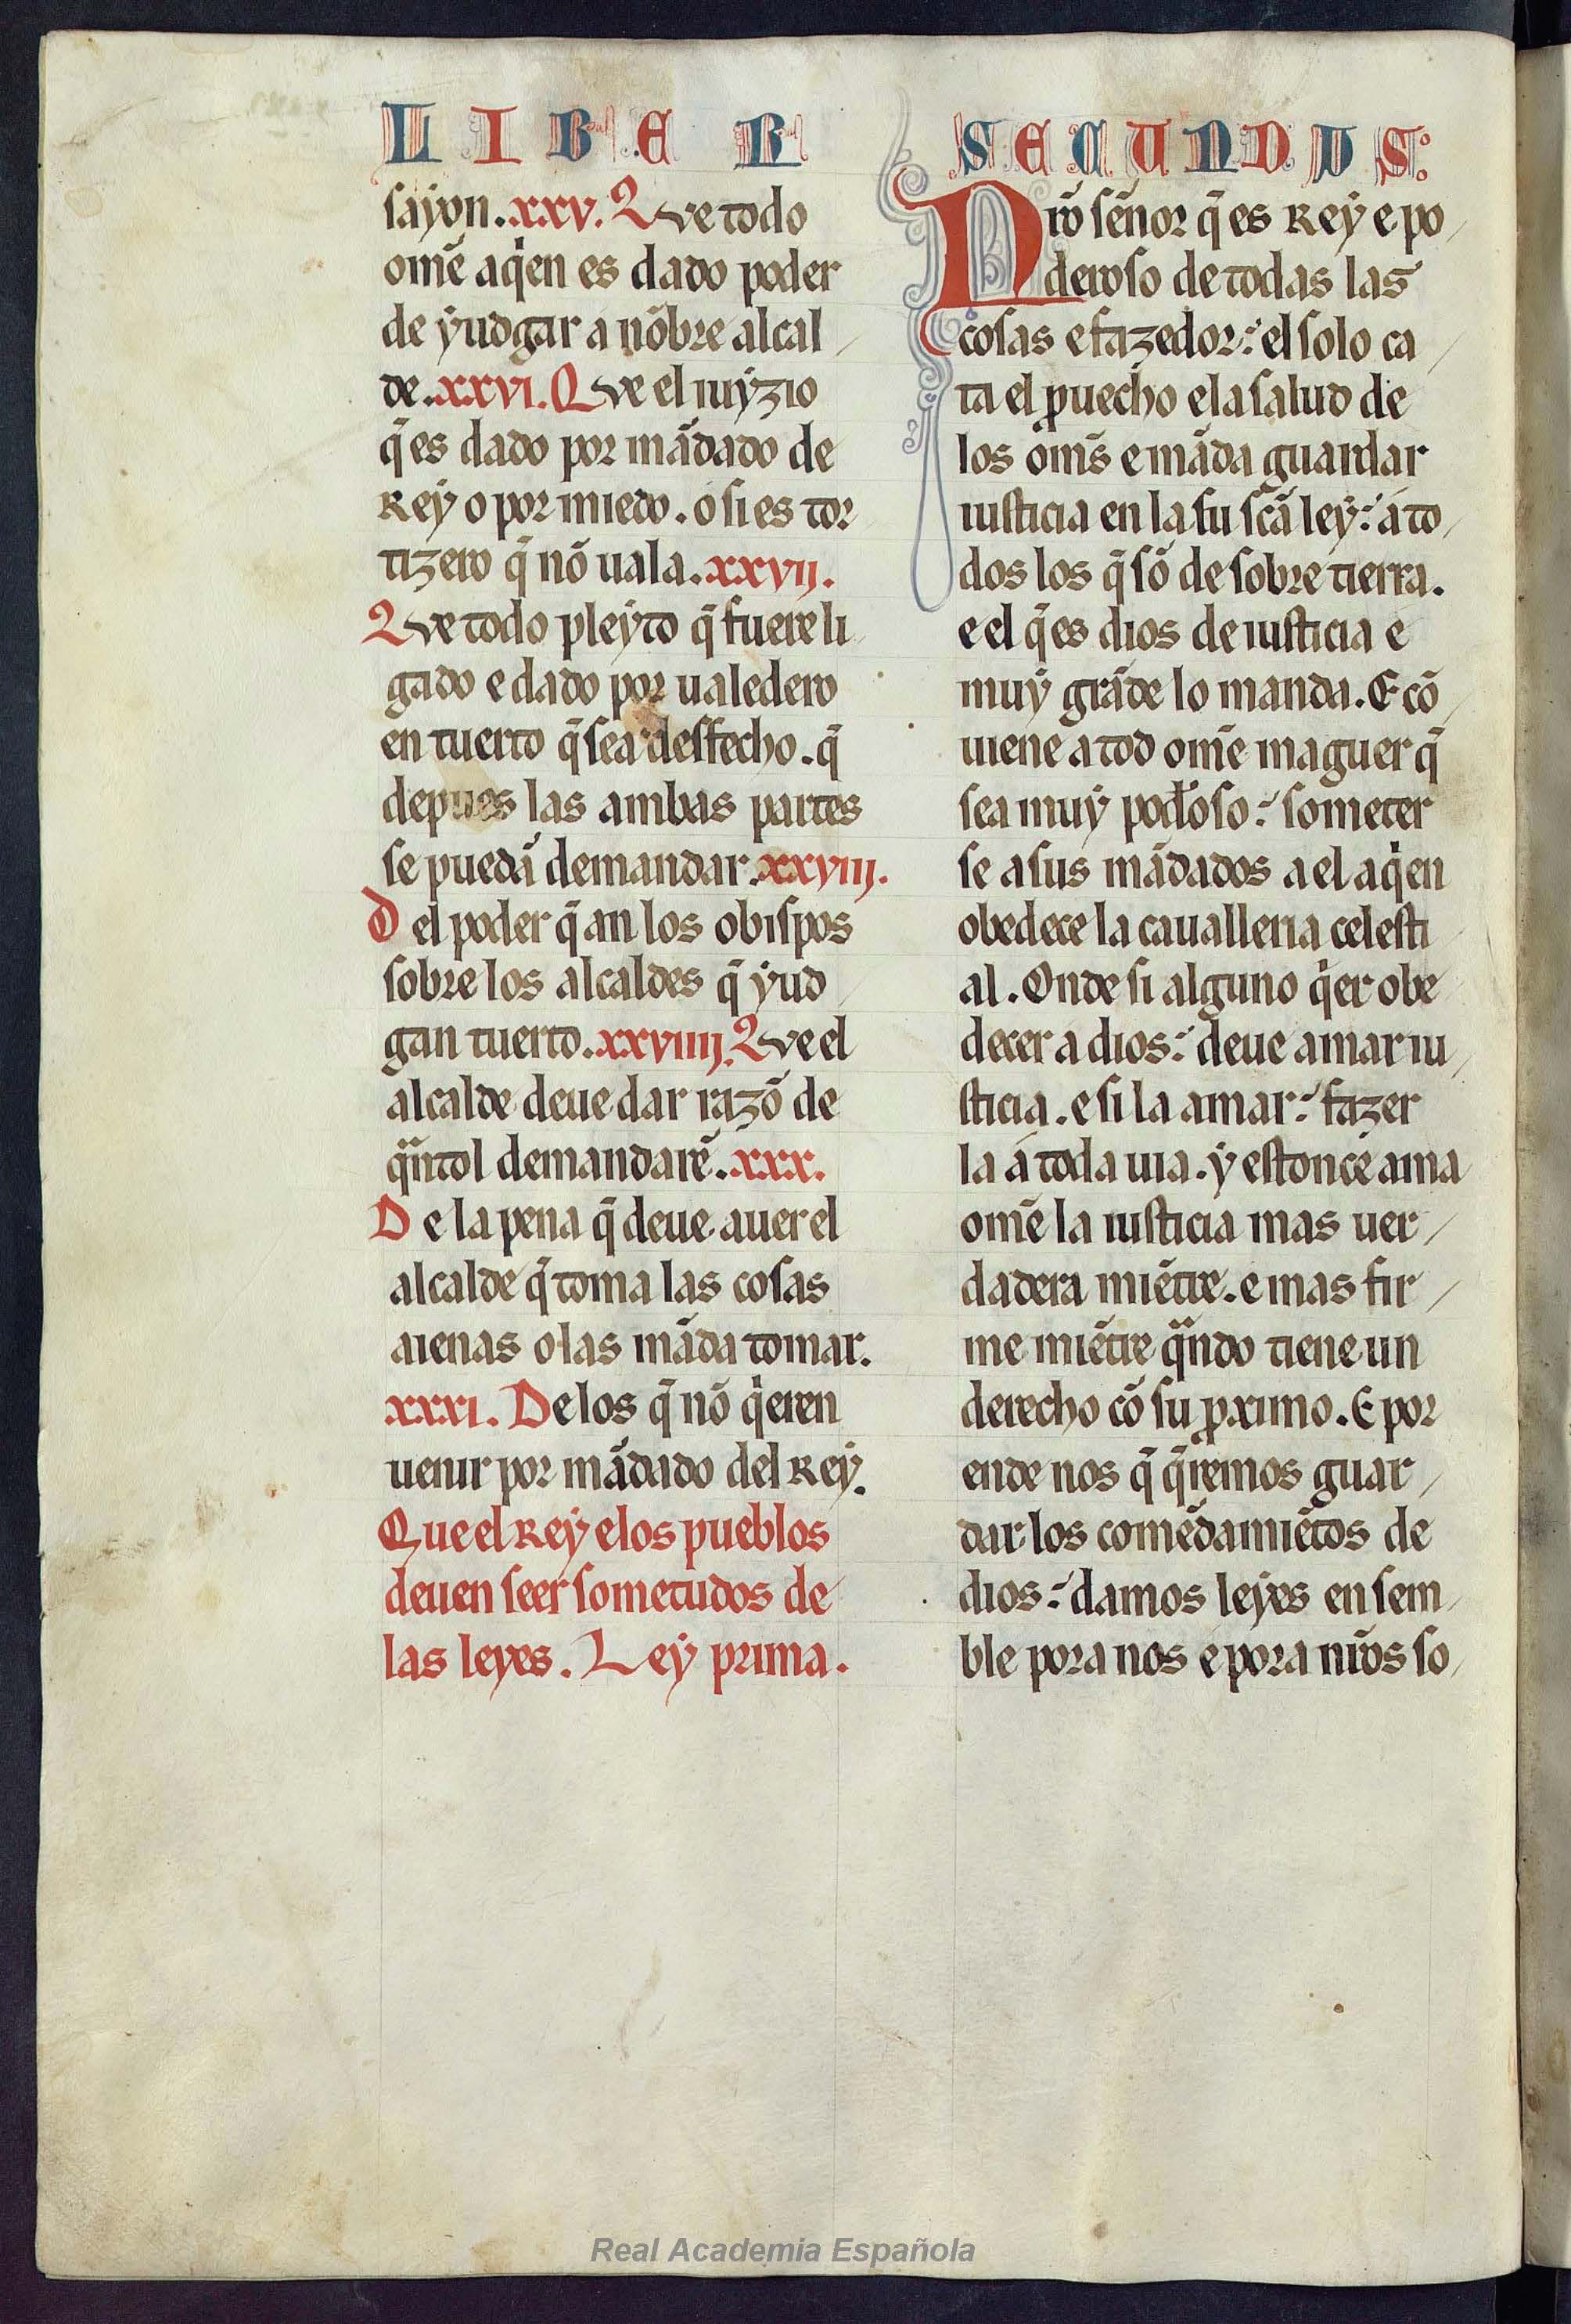 LIBER SECUNDUS
sayon. xxv. Que todo
om̃e aq̇en es dado poder
de ẏudgar a nõbre alcal
de. xxvi. Que el iuẏzio
q̃ es dado por mãdado de
Reẏ o por miedo. o si es tor
tizero q̃ nõ uala. xxvij.
Que todo pleẏto q̃ fuere li
gado e dado por ualedero
en tuerto q̃ sea desfecho. q̃
depues las ambas partes
se puedã demandar. xxviij.
Del poder q̃ an los obispos
sobre los alcaldes q̃ ẏud
gan tuerto. xxviiij. Que el
alcalde deue dar razõ de
qᵃntol demandarẽ. xxx.
De la pena q̃ deue auer el
alcalde q̃ toma las cosas
aienas o las mãda tomar.
xxxi. De los q̃ nõ q̇eren
uenir por mãdado del Reẏ.
Que el Reẏ e los pueblos
deuen seer sometudos de
las leyes. Leẏ prima.
Nr̃o sen̄or q̃ es Reẏ e po
deroso de todas las
cosas e fazedor: el solo ca
ta el ꝓuecho e la salud de
los om̃s e mãda guardar
iusticia en la su sc̃a leẏ: a to
dos los q̃ sõ de sobre tierra.
e el q̃ es dios de iusticia e
muẏ grãde lo manda. E cõ
uiene a tod om̃e maguer q̃
sea muẏ pod̃oso: someter
se a sus mãdados a el aq̇en
obedece la caualleria celesti
al. Onde si alguno q̇er obe
decer a dios: deue amar iu
sticia. e si la amar: fazer
la a toda uia. y estonce ama
om̃e la iusticia mas uer
dadera miẽtre. e mas fir
me miẽtre qᵃndo tiene un
derecho cõ su ꝓximo. E por
ende nos q̃ q̃remos guar
dar los comẽdamiẽtos de
dios: damos leẏes en sem
ble pora nos e pora nr̃os so
Real Academia Española